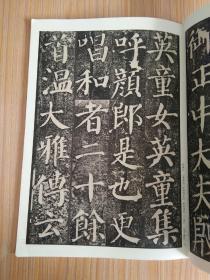 御正中大夫殷
英童女英童集
呼顏郎是也更
唱和者二十餘
首温大雅傳云